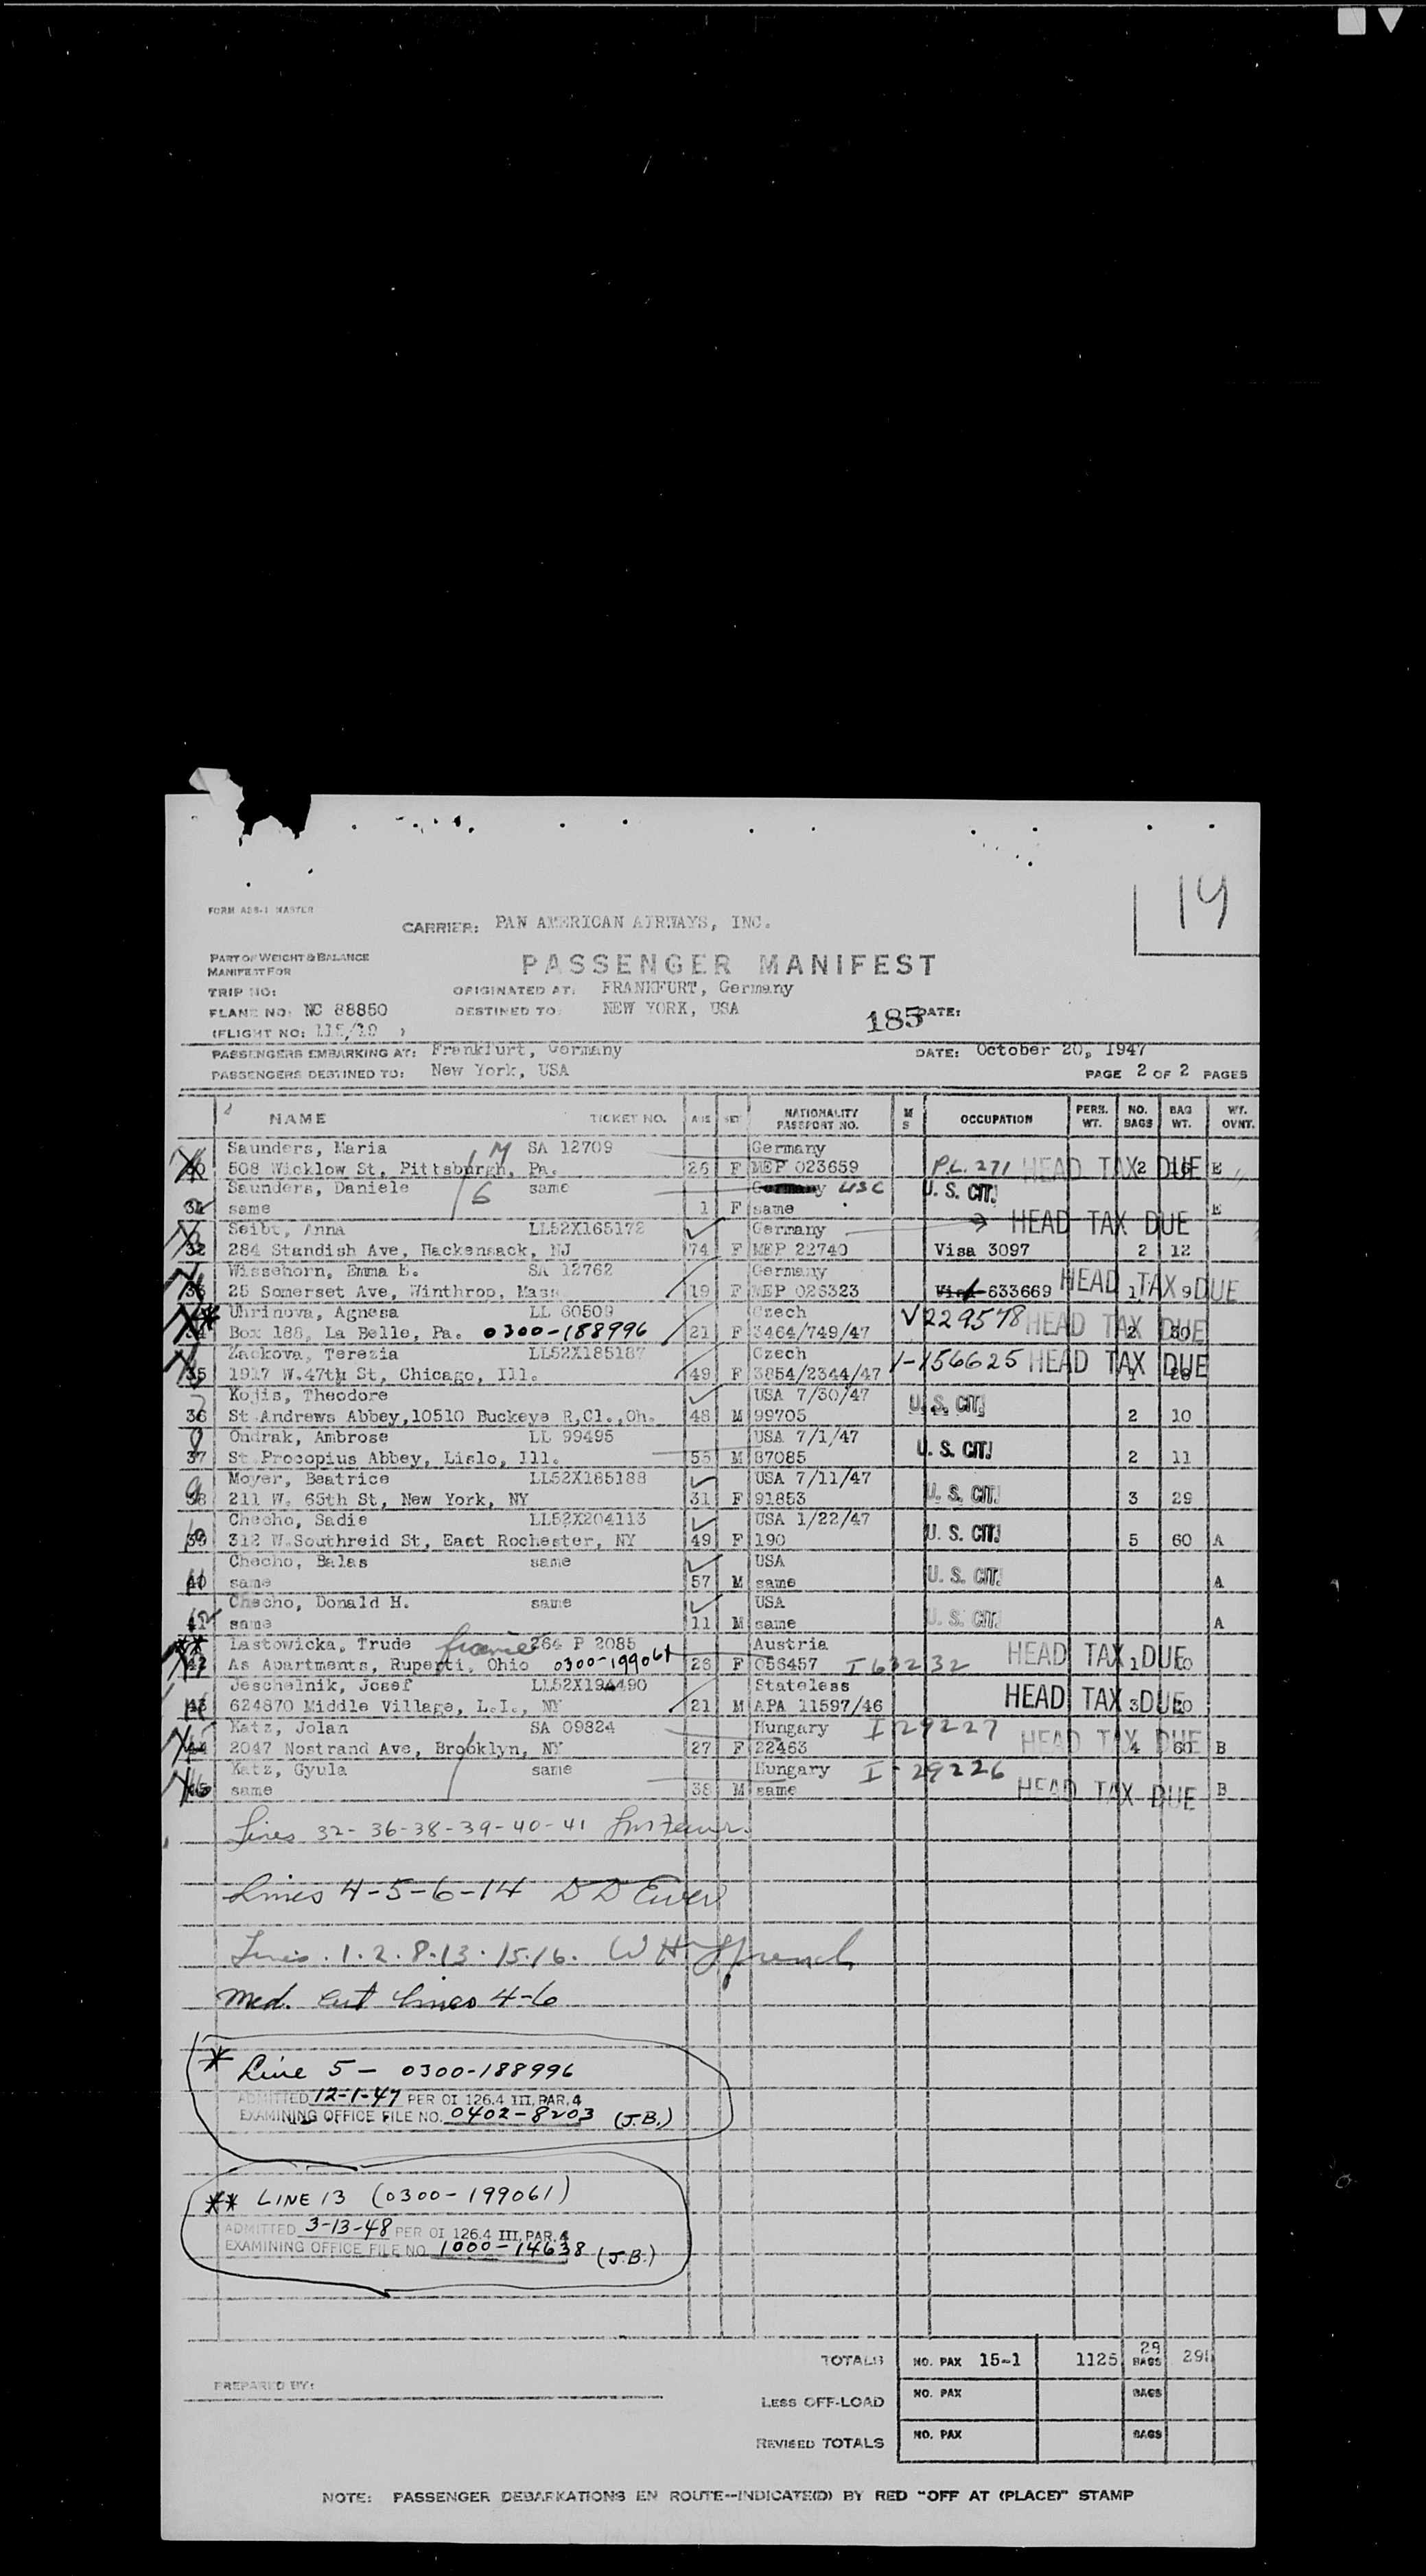 14
FORM ADS-1 MASTER
CARRIER: PAN AMERICAN AIRWAYS, INC.
PART OF WEIGHT & BALANCE
MANIFEST FOR
PASSENGER MANIFEST
TRIP NO:
ORIGINATED AT: FRANKFURT, Germany
PLANE NO: NC 88850
DESTINED TO: NEW YORK, USA
185 DATE:
(FLIGHT NO: )
PASSENGERS EMBARKING AT: Frankfurt, Germany DATE: October 20, 1947
PASSENGERS DESTINED TO: New York, USA PAGE 2 OF 2 PAGES
NAME TICKET NO. AGE SEX NATIONALITY PASSPORT NO. M S OCCUPATION PERS. WT. NO. BAGS BAG WT. WT. OVNT.
Saunders, Maria M SA 12709 Germany
508 Wicklow St, Pittsburgh, Pa. 26 F MEP 023659 P.L. 271 HEAD TAX DUE 2 16 E
Saunders, Daniele 6 same Germany USC U. S. CIT.
same 1 F same E
Seibt, Anna LL52X165172 Germany HEAD TAX DUE
32 284 Standish Ave, Hackensack, NJ 74 F MEP 22740 Visa 3097 2 12
Wissehorn, Emma E. SA 12762 Germany
33 25 Somerset Ave, Winthrop, Mass 19 F MEP 026323 633669 HEAD TAX DUE 1 9
* Uhrinova, Agnesa LL 60509 Czech
34 Box 188, La Belle, Pa. 0300-188996 21 F 3464/749/47 V229578 HEAD TAX DUE 2 30
Zackova, Terezia LL52X185187 Czech
35 1917 W.47th St, Chicago, Ill. 49 F 3854/2344/47 V-156625 HEAD TAX DUE
Kojis, Theodore USA 7/30/47
36 St Andrews Abbey,10510 Buckeye R,Cl.,Oh. 48 M 99705 U. S. CIT. 2 10
Ondrak, Ambrose LL 99495 USA 7/1/47
37 St Procopius Abbey, Lislo, Ill. 55 M 87085 U. S. CIT. 2 11
Moyer, Beatrice LL52X185188 USA 7/11/47
38 211 W. 65th St, New York, NY 31 F 91853 U. S. CIT. 3 29
Checho, Sadie LL52X204113 USA 1/22/47
39 312 W.Southreid St, East Rochester, NY 49 F 190 U. S. CIT. 5 60 A
Checho, Balas same USA
40 same 57 M same U. S. CIT. A
Checho, Donald H. same USA
41 same 11 M same U. S. CIT. A
** Lastowicka, Trude 264 P 2085 Austria
42 As Apartments, Ruperti, Ohio 0300-199061 26 F 056457 I 63232 HEAD TAX DUE 1
Jeschelnik, Josef LL52X194490 Stateless
43 624870 Middle Village, L.I., NY 21 M APA 11597/46 HEAD TAX DUE 3
Katz, Jolan SA 09824 Hungary I 29227
44 2047 Nostrand Ave, Brooklyn, NY 27 F 22463 HEAD TAX DUE 4 60 B
Katz, Gyula same Hungary I-29226
same 38 M same HEAD TAX DUE B
Lines 32-36-38-39-40-41
Lines 4-5-6-14 D D Ewen
Lines. 1. 2. 8. 13. 15. 16. W H French
Med. Cert lines 4-6
* Line 5 - 0300-188996
ADMITTED 12-1-47 PER OI 126.4 III, PAR. 4
EXAMINING OFFICE FILE NO. 0402-8203 (J.B.)
** LINE 13 (0300-199061)
ADMITTED 3-13-48 PER OI 126.4 III, PAR. 4
EXAMINING OFFICE FILE NO. 1000-14638 (J.B.)
TOTALS NO. PAX 15-1 1125 28 BAGS 291
PREPARED BY:
LESS OFF-LOAD NO. PAX BAGS
REVISED TOTALS NO. PAX BAGS
NOTE: PASSENGER DEBARKATIONS EN ROUTE--INDICATE(D) BY RED "OFF AT (PLACE)" STAMP